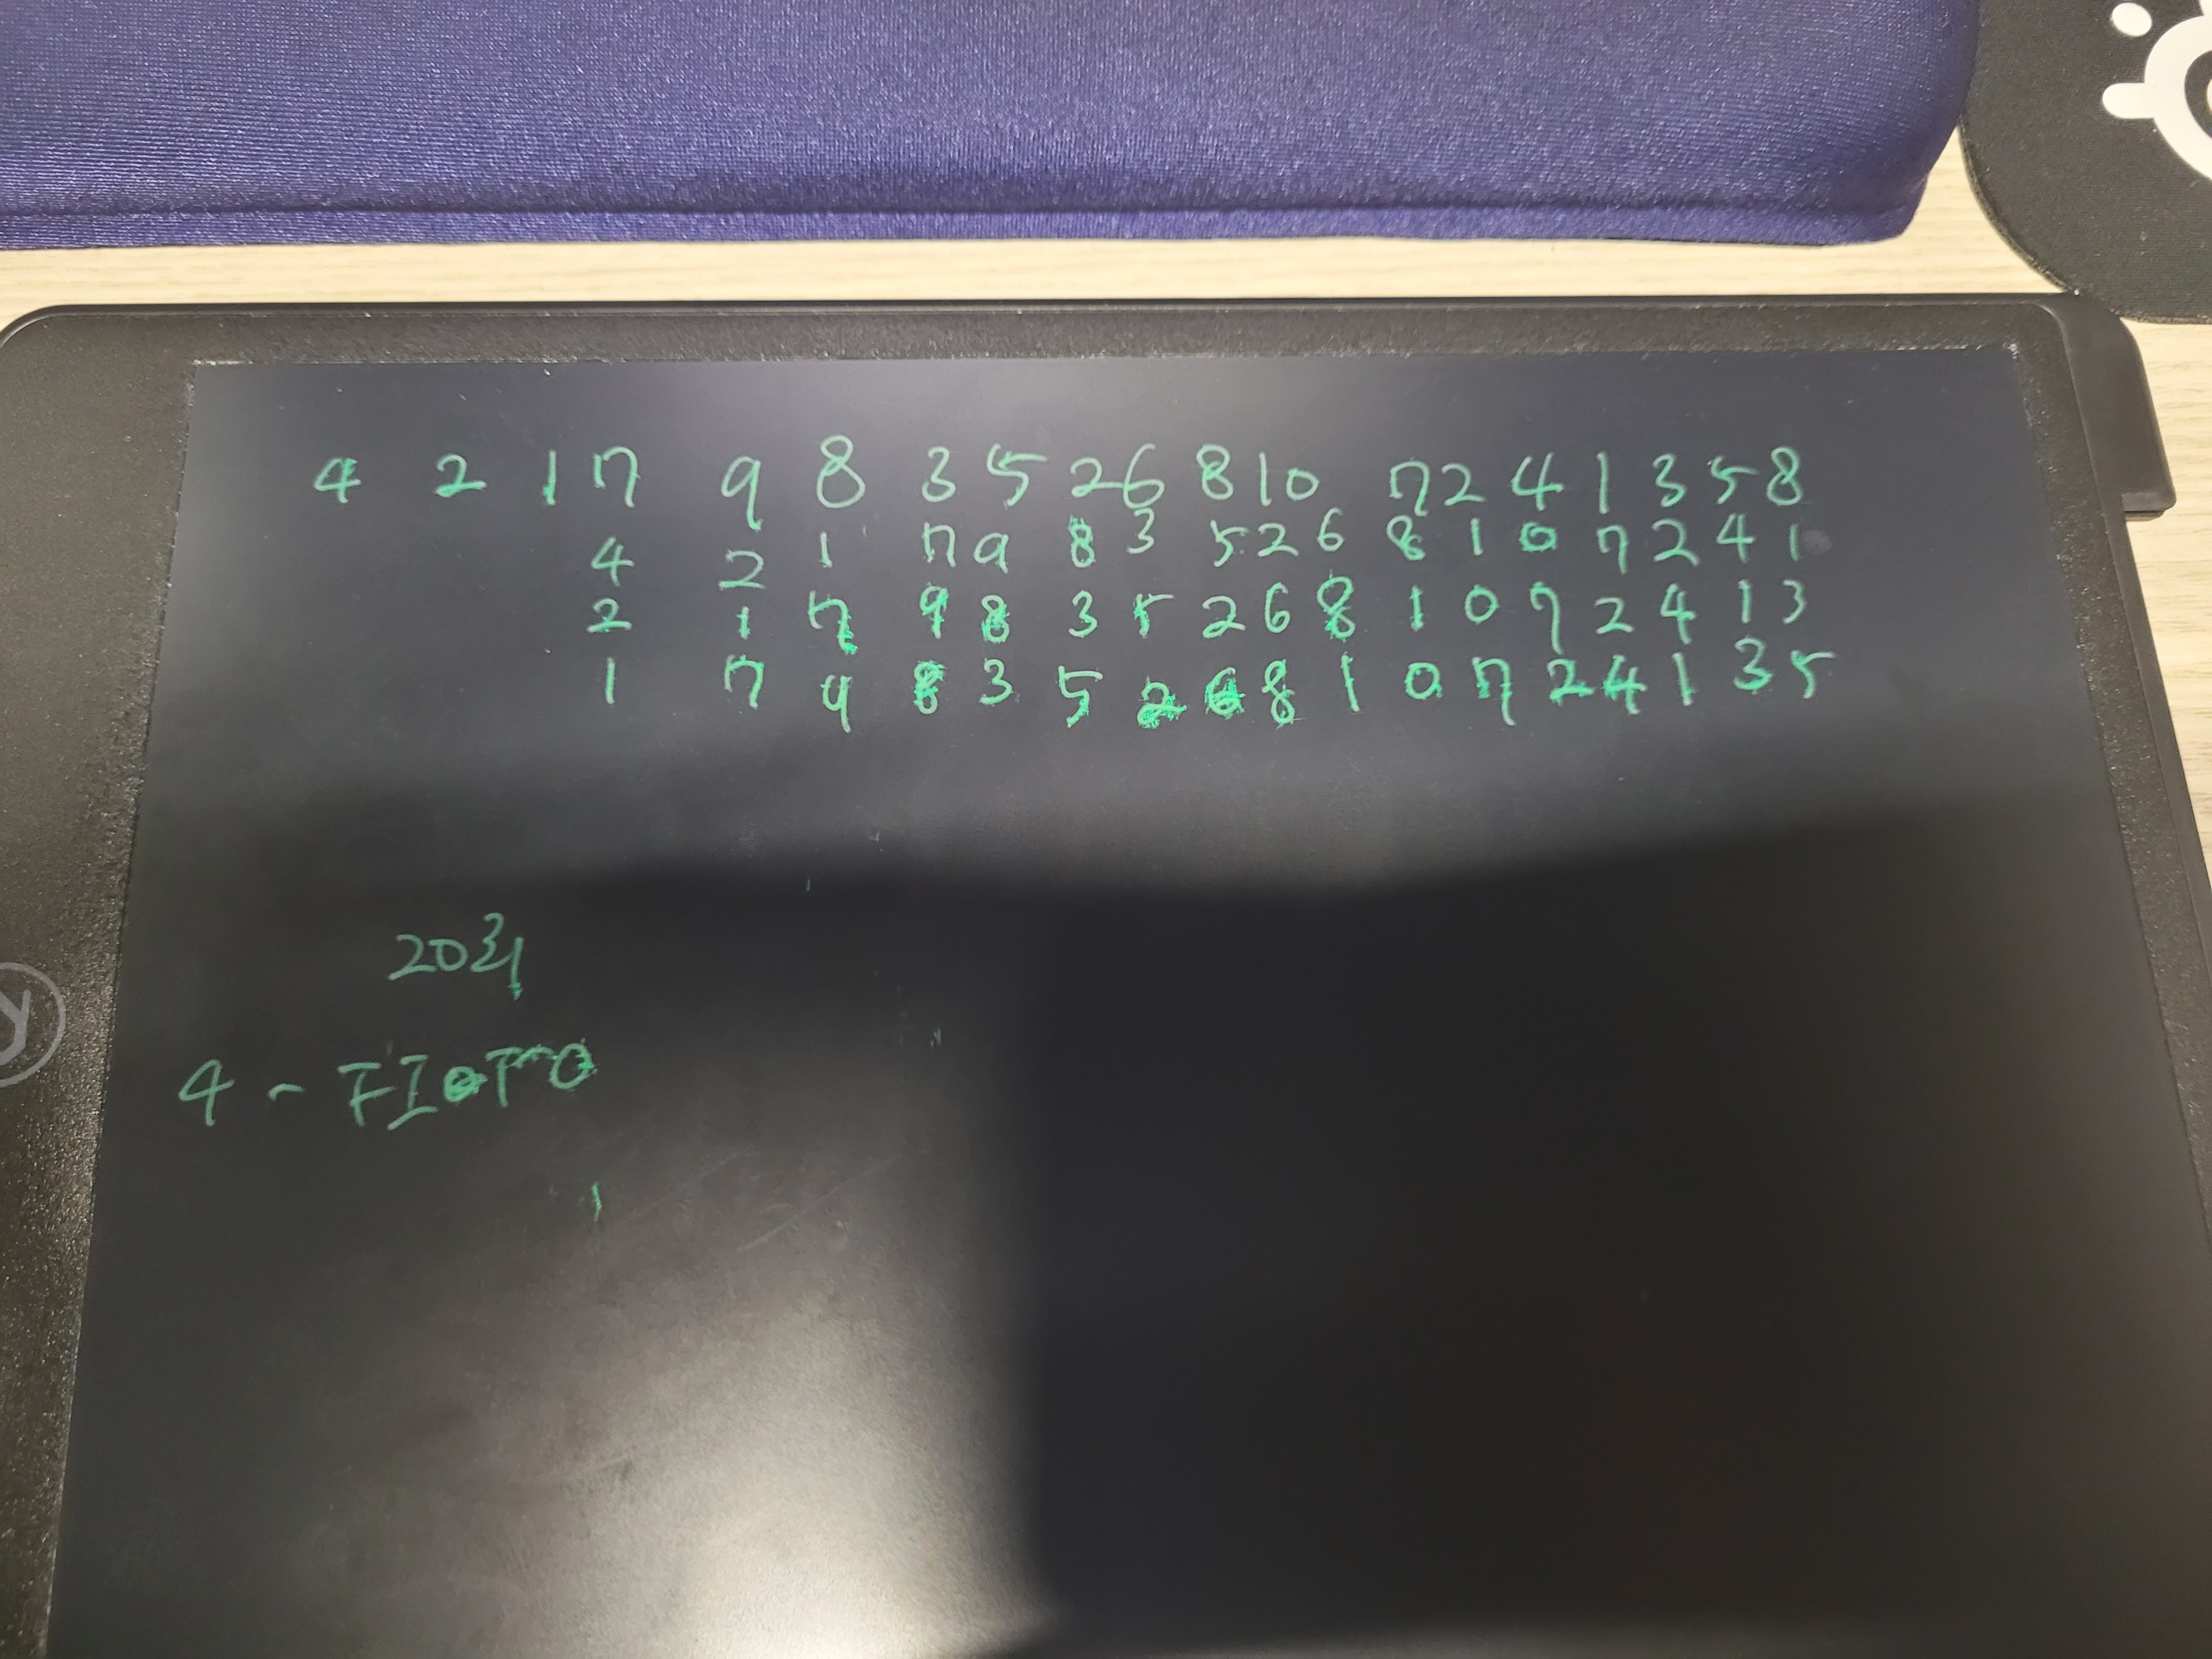 4 2 1 7 9 8 3 5 2 6 8 1 0 7 2 4 1 3 5 8
4 2 1 7 9 8 3 5 2 6 8 1 0 7 2 4 1
2 1 7 9 8 3 5 2 6 8 1 0 7 2 4 1 3
1 7 9 8 3 5 2 6 8 1 0 7 2 4 1 3 5
4 -